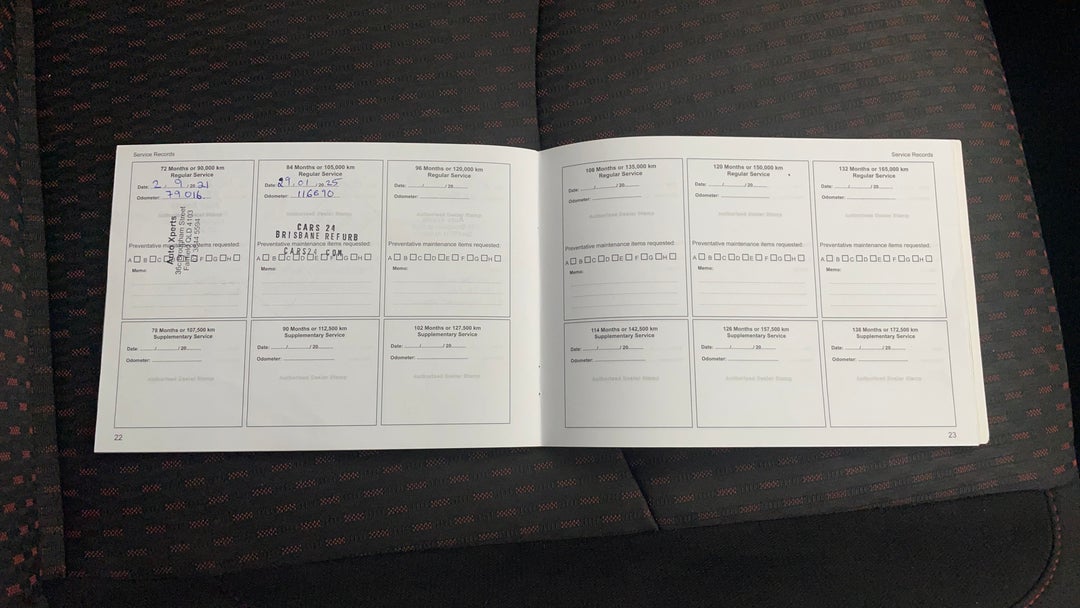 Service Records
72 Months or 90,000 km
Regular Service
Date: 2 / 9 / 20 21
Odometer: 79016
Authorised Dealer Stamp
Auto Xperts
Preventative maintenance items requested:
A B C D E F G H
Memo:
84 Months or 105,000 km
Regular Service
Date: 29 / 01 / 20 25
Odometer: 116670
Authorised Dealer Stamp
CARS 24
BRISBANE REFURB
Preventative maintenance items requested:
CARS24 . COM
A B C D E F G H
Memo:
96 Months or 120,000 km
Regular Service
Date: ____/____/ 20____
Odometer: ____
Authorised Dealer Stamp
Preventative maintenance items requested:
A B C D E F G H
Memo:
78 Months or 107,500 km
Supplementary Service
Date: ____/____/ 20____
Odometer: ____
Authorised Dealer Stamp
90 Months or 112,500 km
Supplementary Service
Date: ____/____/ 20____
Odometer: ____
Authorised Dealer Stamp
102 Months or 127,500 km
Supplementary Service
Date: ____/____/ 20____
Odometer: ____
Authorised Dealer Stamp
22
Service Records
108 Months or 135,000 km
Regular Service
Date: ____/____/ 20____
Odometer: ____
Authorised Dealer Stamp
Preventative maintenance items requested:
A B C D E F G H
Memo:
120 Months or 150,000 km
Regular Service
Date: ____/____/ 20____
Odometer: ____
Authorised Dealer Stamp
Preventative maintenance items requested:
A B C D E F G H
Memo:
132 Months or 165,000 km
Regular Service
Date: ____/____/ 20____
Odometer: ____
Authorised Dealer Stamp
Preventative maintenance items requested:
A B C D E F G H
Memo:
114 Months or 142,500 km
Supplementary Service
Date: ____/____/ 20____
Odometer: ____
Authorised Dealer Stamp
126 Months or 157,500 km
Supplementary Service
Date: ____/____/ 20____
Odometer: ____
Authorised Dealer Stamp
138 Months or 172,500 km
Supplementary Service
Date: ____/____/ 20____
Odometer: ____
Authorised Dealer Stamp
23